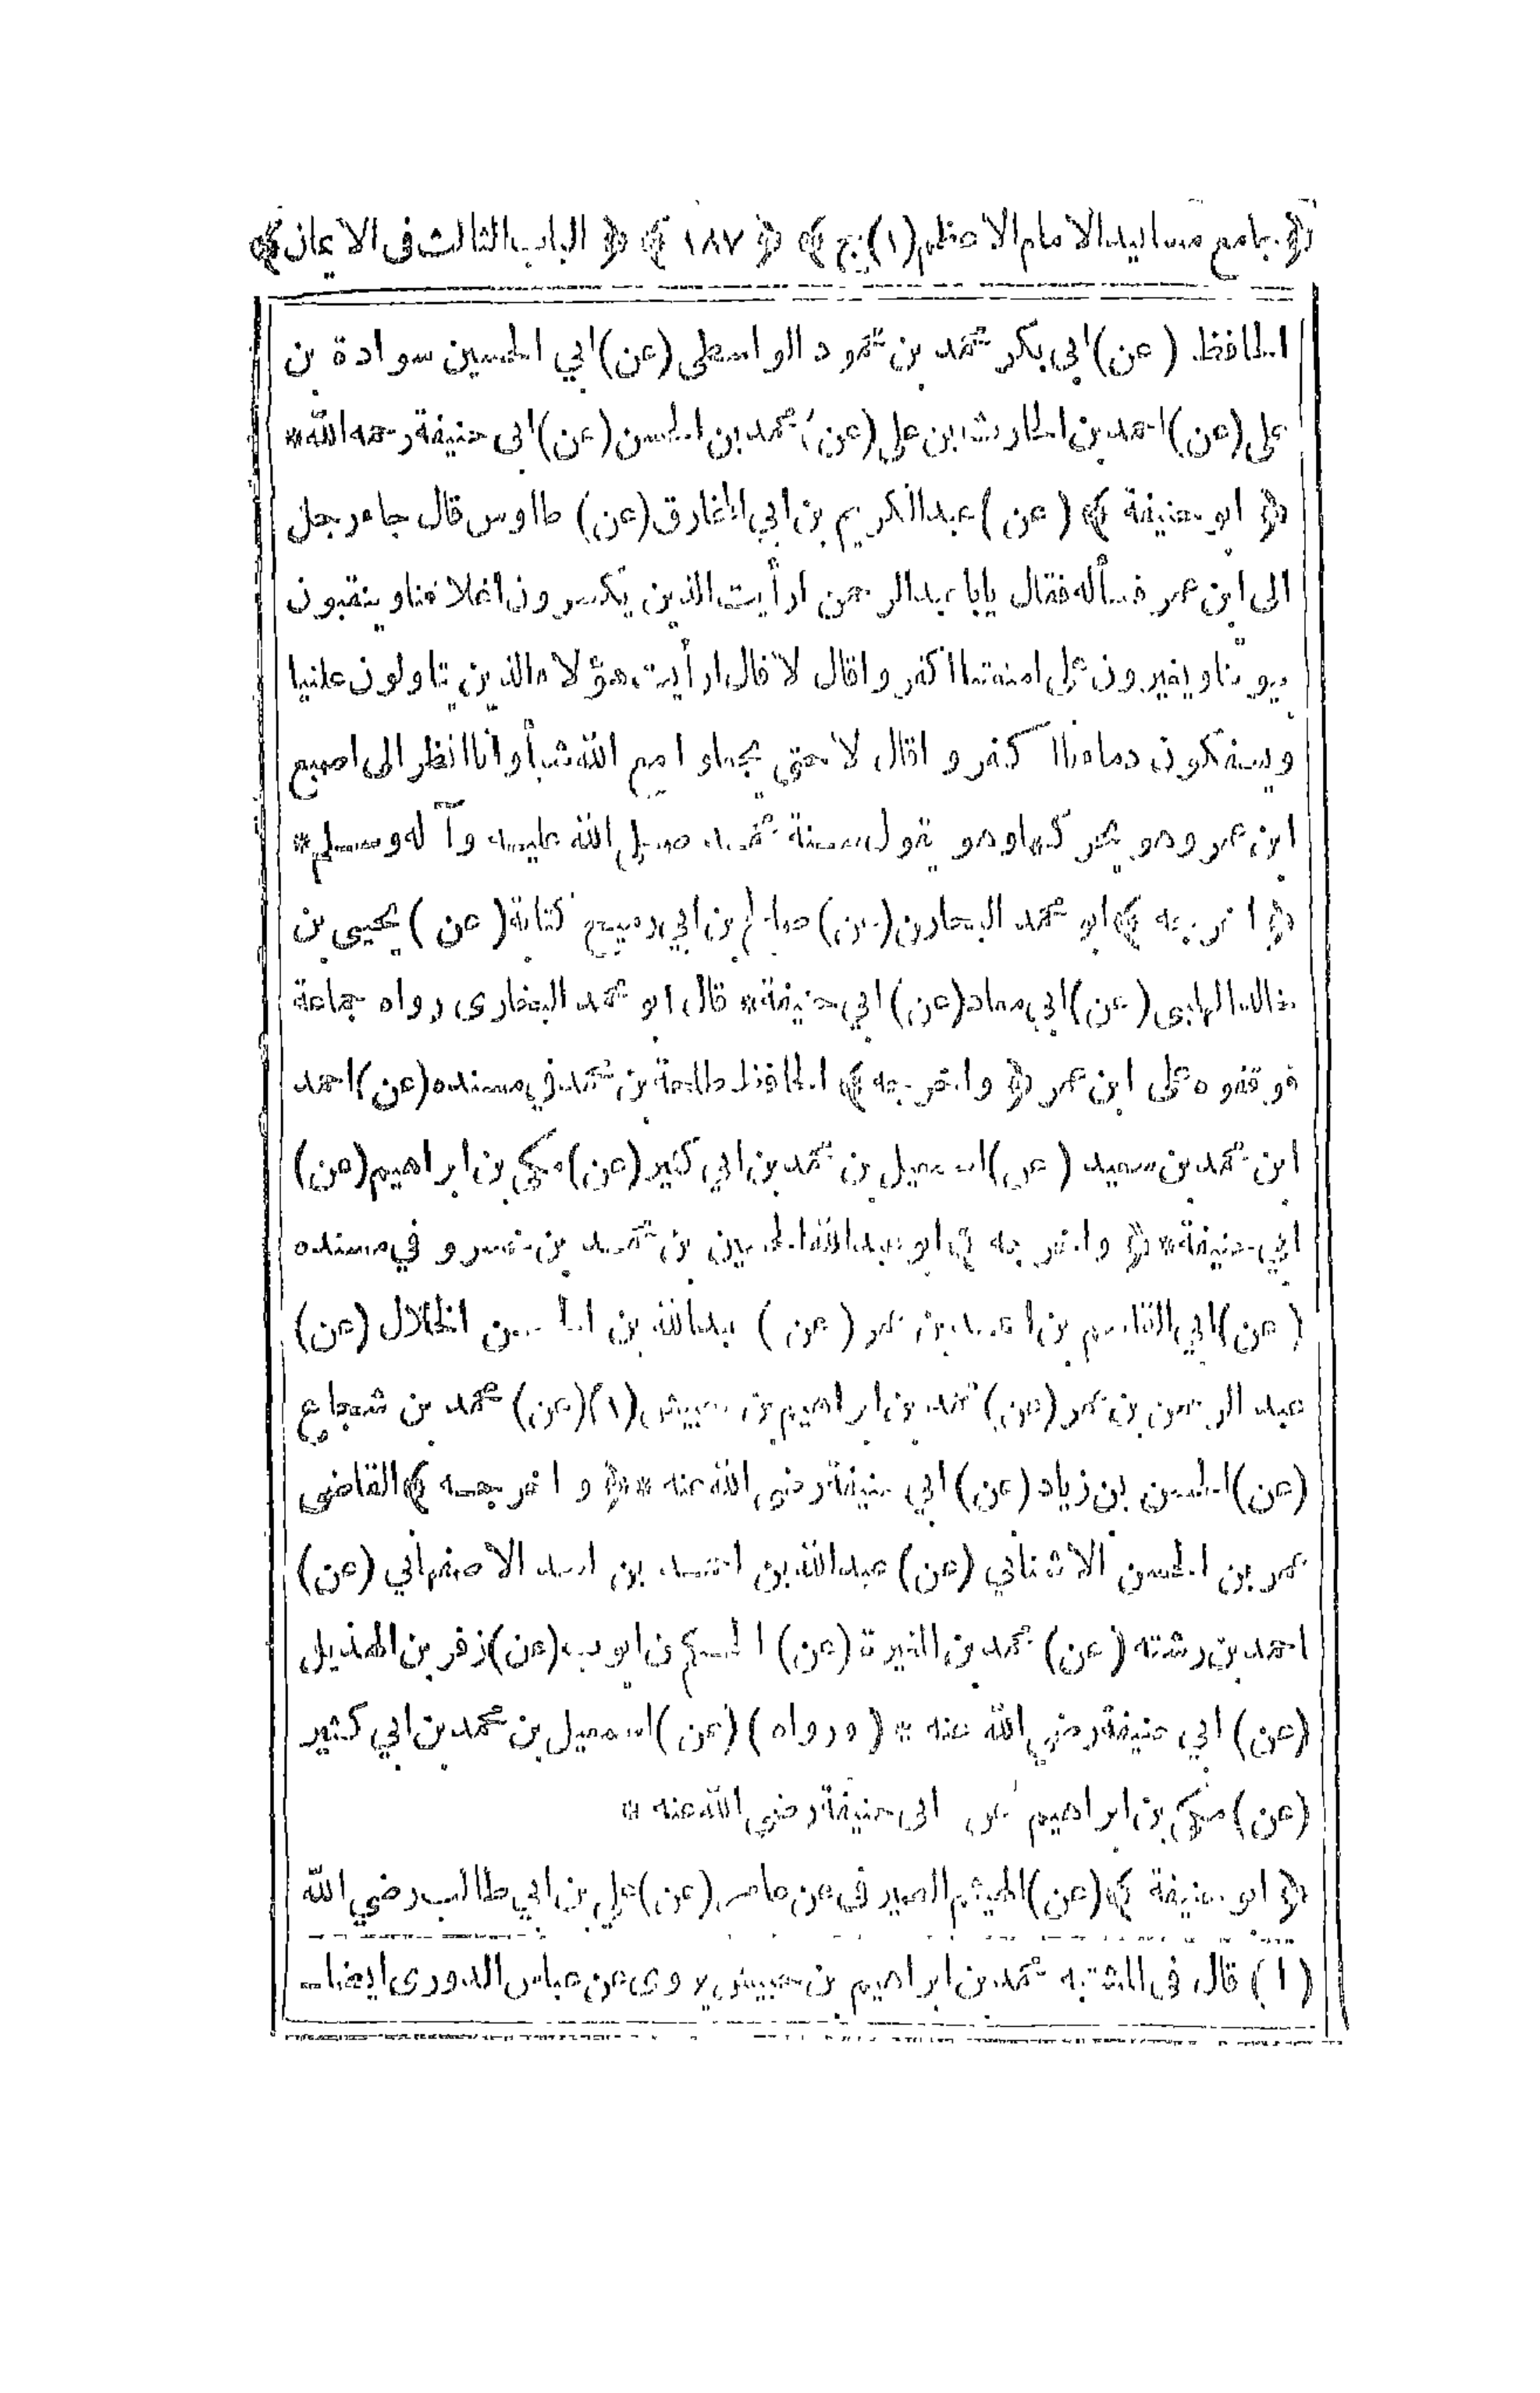 ﴿ جامع مسانيد الامام الاعظم (١) ج ﴾ ﴿ ١٨٧ ﴾ ﴿ الباب الثالث فى الايمان ﴾
الحافظ (عن) ابى بكر محمد بن محمود الواسطى (عن) ابي الحسين سوادة بن
على (عن) احمد بن الحارث بن على (عن) محمد بن الحسن (عن) ابى حنيفة رحمه الله *
﴿ ابو حنيفة ﴾ (عن) عبد الكريم بن ابي المخارق (عن) طاوس قال جاء رجل
الى ابن عمر فسأله فقال يابا عبد الرحمن ارأيت الذين يكسرون اغلاقنا وينقبون
بيوتنا ويغيرون على امتعتنا اكفروا قال لا قال ارأيت هؤلاء الذين يتاولون علينا
ويسفكون دماءنا اكفروا قال لا حتى يجعلوا مع الله شيأ وانا انظر الى اصبع
ابن عمر وهو يحركها وهو يقول سنة محمد صلى الله عليه وآله وسلم *
﴿ اخرجه ﴾ ابو محمد البخارى (عن) صالح بن ابي رميح كتابة (عن) يحيى بن
خالد المهلبى (عن) ابي معاذ (عن) ابي حنيفة * قال ابو محمد البخارى رواه جماعة
فوقفوه على ابن عمر ﴿ واخرجه ﴾ الحافظ طلحة بن محمد في مسنده (عن) احمد
ابن محمد بن سعيد (عن) اسمعيل بن محمد بن ابي كثير (عن) مكي بن ابراهيم (عن)
ابي حنيفة * ﴿ واخرجه ﴾ ابو عبد الله الحسين بن محمد بن خسرو في مسنده
(عن) ابي القاسم بن احمد بن عمر (عن) عبد الله بن الحسين الخلال (عن)
عبد الرحمن بن عمر (عن) محمد بن ابراهيم بن حبيش (١) (عن) محمد بن شجاع
(عن) الحسن بن زياد (عن) ابي حنيفة رضى الله عنه * ﴿ واخرجه ﴾ القاضى
عمر بن الحسن الاشناني (عن) عبد الله بن احمد بن اسد الاصفهاني (عن)
احمد بن رشته (عن) محمد بن المغيرة (عن) الحكم بن ايوب (عن) زفر بن الهذيل
(عن) ابي حنيفة رضي الله عنه * (ورواه) (عن) اسمعيل بن محمد بن ابي كثير
(عن) مكي بن ابراهيم عن ابى حنيفة رضي الله عنه *
﴿ ابو حنيفة ﴾ (عن) الهيثم الصيرفى عن عامر (عن) علي بن ابي طالب رضي الله
(١) قال فى المشتبه محمد بن ابراهيم بن حبيش يروى عن عباس الدورى ايضا ــ